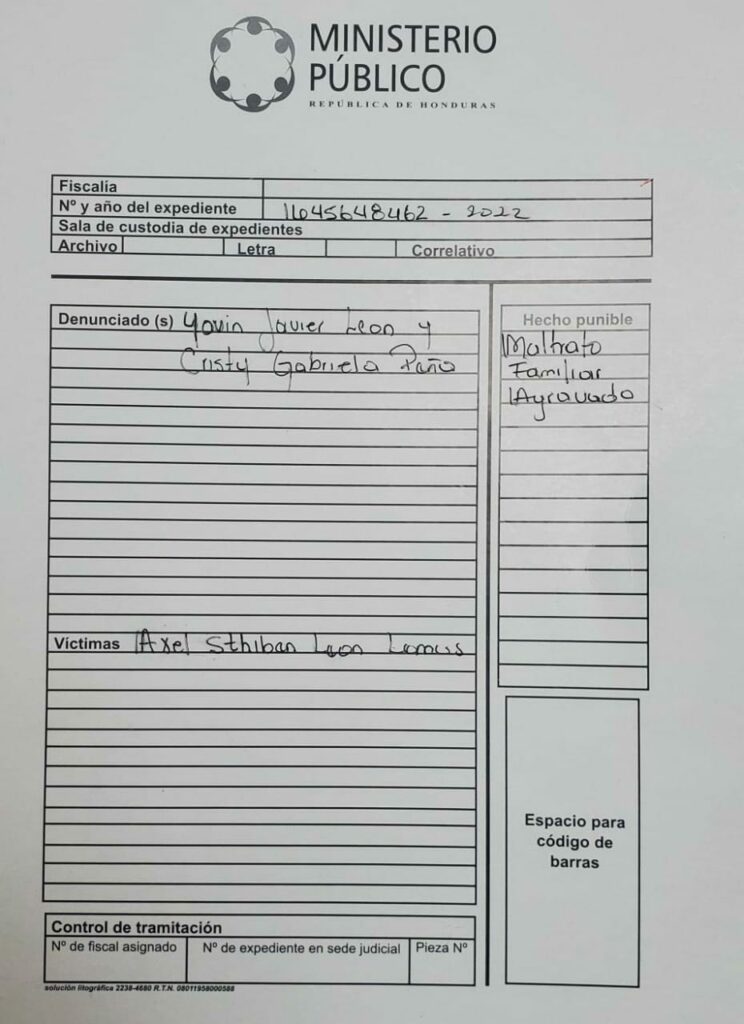 MINISTERIO
PÚBLICO
REPÚBLICA DE HONDURAS
Fiscalía
Nº y año del expediente 11045648462 - 2022
Sala de custodia de expedientes
Archivo Letra Correlativo
Denunciado (s) Yovin Javier Leon y
Cristy Gabriela Paño
Hecho punible
Maltrato
Familiar
Agravado
Víctimas Axel Sthiban Leon Lemus
Espacio para
código de
barras
Control de tramitación
Nº de fiscal asignado Nº de expediente en sede judicial Pieza Nº
solución litográfica 2238-4680 R.T.N. 08011958000588